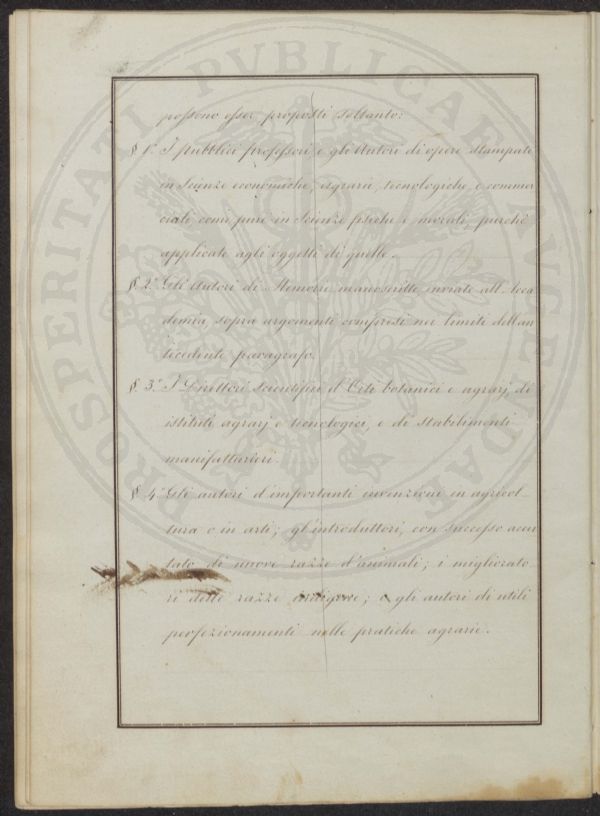 possono esser proposti soltanto:
§ 1.° I pubblici professori, e gli Autori di opere stampate
in Scienze economiche, agrarie, tecnologiche, e commer
ciali, come pure in Scienze fisiche e morali, purchè
applicate agli oggetti di quelle.
§ 2.° Gli Autori di Memorie manoscritte inviate all'Acca
demia, sopra argomenti compresi nei limiti dell'an
tecedente paragrafo.
§. 3.° I Direttori scientifici d'Orti botanici e agrarj, di
istituti agrarj e tecnologici, e di Stabilimenti
manifatturieri.
§ 4.° Gli autori d'importanti invenzioni in agricol-
tura o in arti; gl'introduttori, con successo accer
tato di nuove razze d'animali; i migliorato-
ri delle razze indigene; e gli autori di utili
perfezionamenti nelle pratiche agrarie.
PROSPERITATI PVBLICAE AVGENDAE